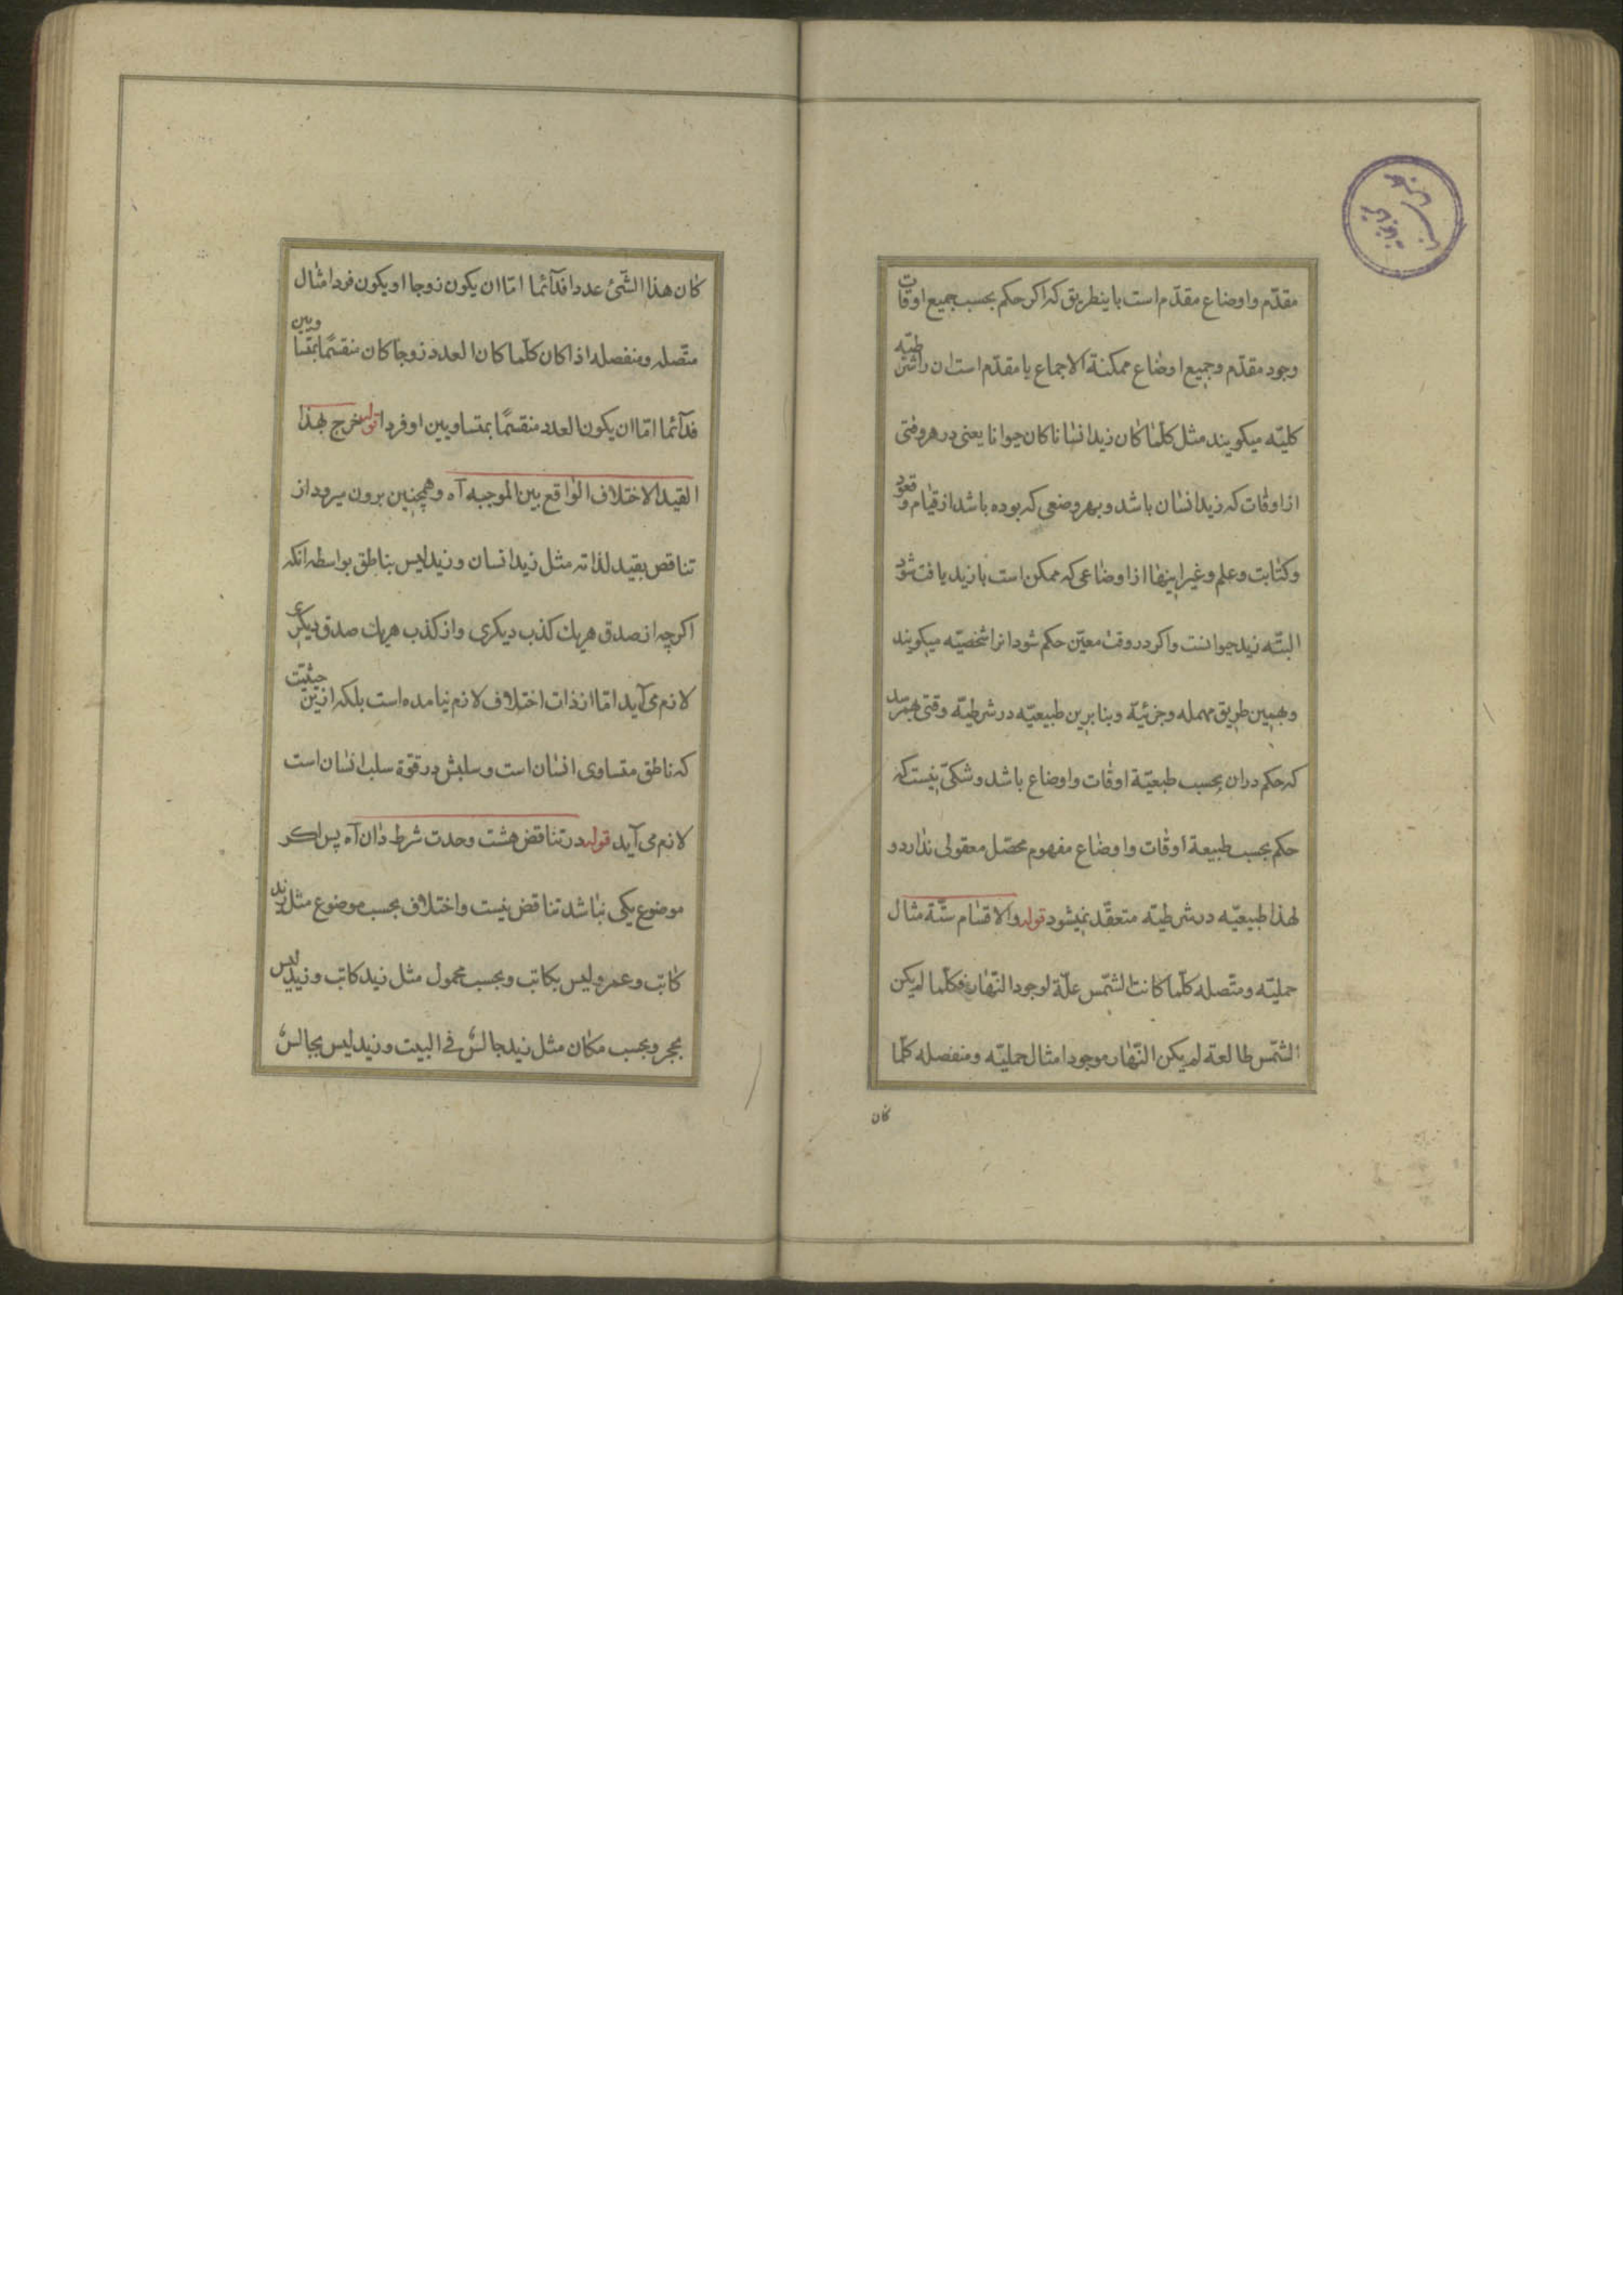 مقدّم واوضاع مقدّم است باینطریق که اکر حکم بحسب جمیع اوقات
وجود مقدّم وجمیع اوضاع ممکنة الاجماع با مقدّم است ان را شرطیّه
کلیّه میکویند مثل کلّما کان زید انسانا کان حیوانا یعنی در هر وقتی
از اوقات که زید انسان باشد وبهر وضعی که بوده باشد از قیام وقعود
وکتابت وعلم وغیر اینها از اوضاعی که ممکن است با زید یافت شود
البتّه زید حیوانست واکر در وقت معیّن حکم شود انرا شخصیّه میکویند
وبهمین طریق مهمله وجزئیّة وبنابرین طبیعیّه در شرطیّه وقتی بهمرسد
که حکم دران بحسب طبعیّة اوقات واوضاع باشد وشکّی نیست که
حکم بحسب طبیعة اوقات واوضاع مفهوم محصّل معقولی ندارد و
لهذا طبیعیّه در شرطیّه متعقّد نمیشود قوله والاقسام ستّة مثال
حملیّه ومتّصله کلّما کانت الشّمس علّة لوجود النّهار فکلّما لم یکن
الشّمس طالعة لم یکن النّهار موجودا مثال حملیّه ومنفصله کلّما
کان
کان هذا الشّئ عددا فدآئما امّا ان یکون زوجا او یکون فردا مثال
متّصله ومنفصله اذا کان کلّما کان العدد زوجا کان منقسمًا بمتساویین
فدآئما امّا ان یکون العدد منقسمًا بمتساویین او فردا قوله خرج بهذا
القید الاختلاف الواقع بین الموجبه آه وهمچنین برون میرود از
تناقص بقید لذاته مثل زید انسان وزید لیس بناطق بواسطه انکه
اکرچه از صدق هریك کذب دیکری واز کذب هریك صدق دیکری
لازم می آید امّا از ذات اختلاف لازم نیامده است بلکه ازین حیثیّت
که ناطق متساوی انسان است وسلبش در قوّة سلب انسان است
لازم می آید قوله در تناقض هشت وحدت شرط دان آه پس اکر
موضوع یکی نباشد تناقض نیست واختلاف بحسب موضوع مثل زید
کاتب وعمرو لیس بکاتب وبحسب محمول مثل زید کاتب وزید لیس
بحجر وبحسب مکان مثل زید جالسٌ فی البیت وزید لیس بجالسٌ